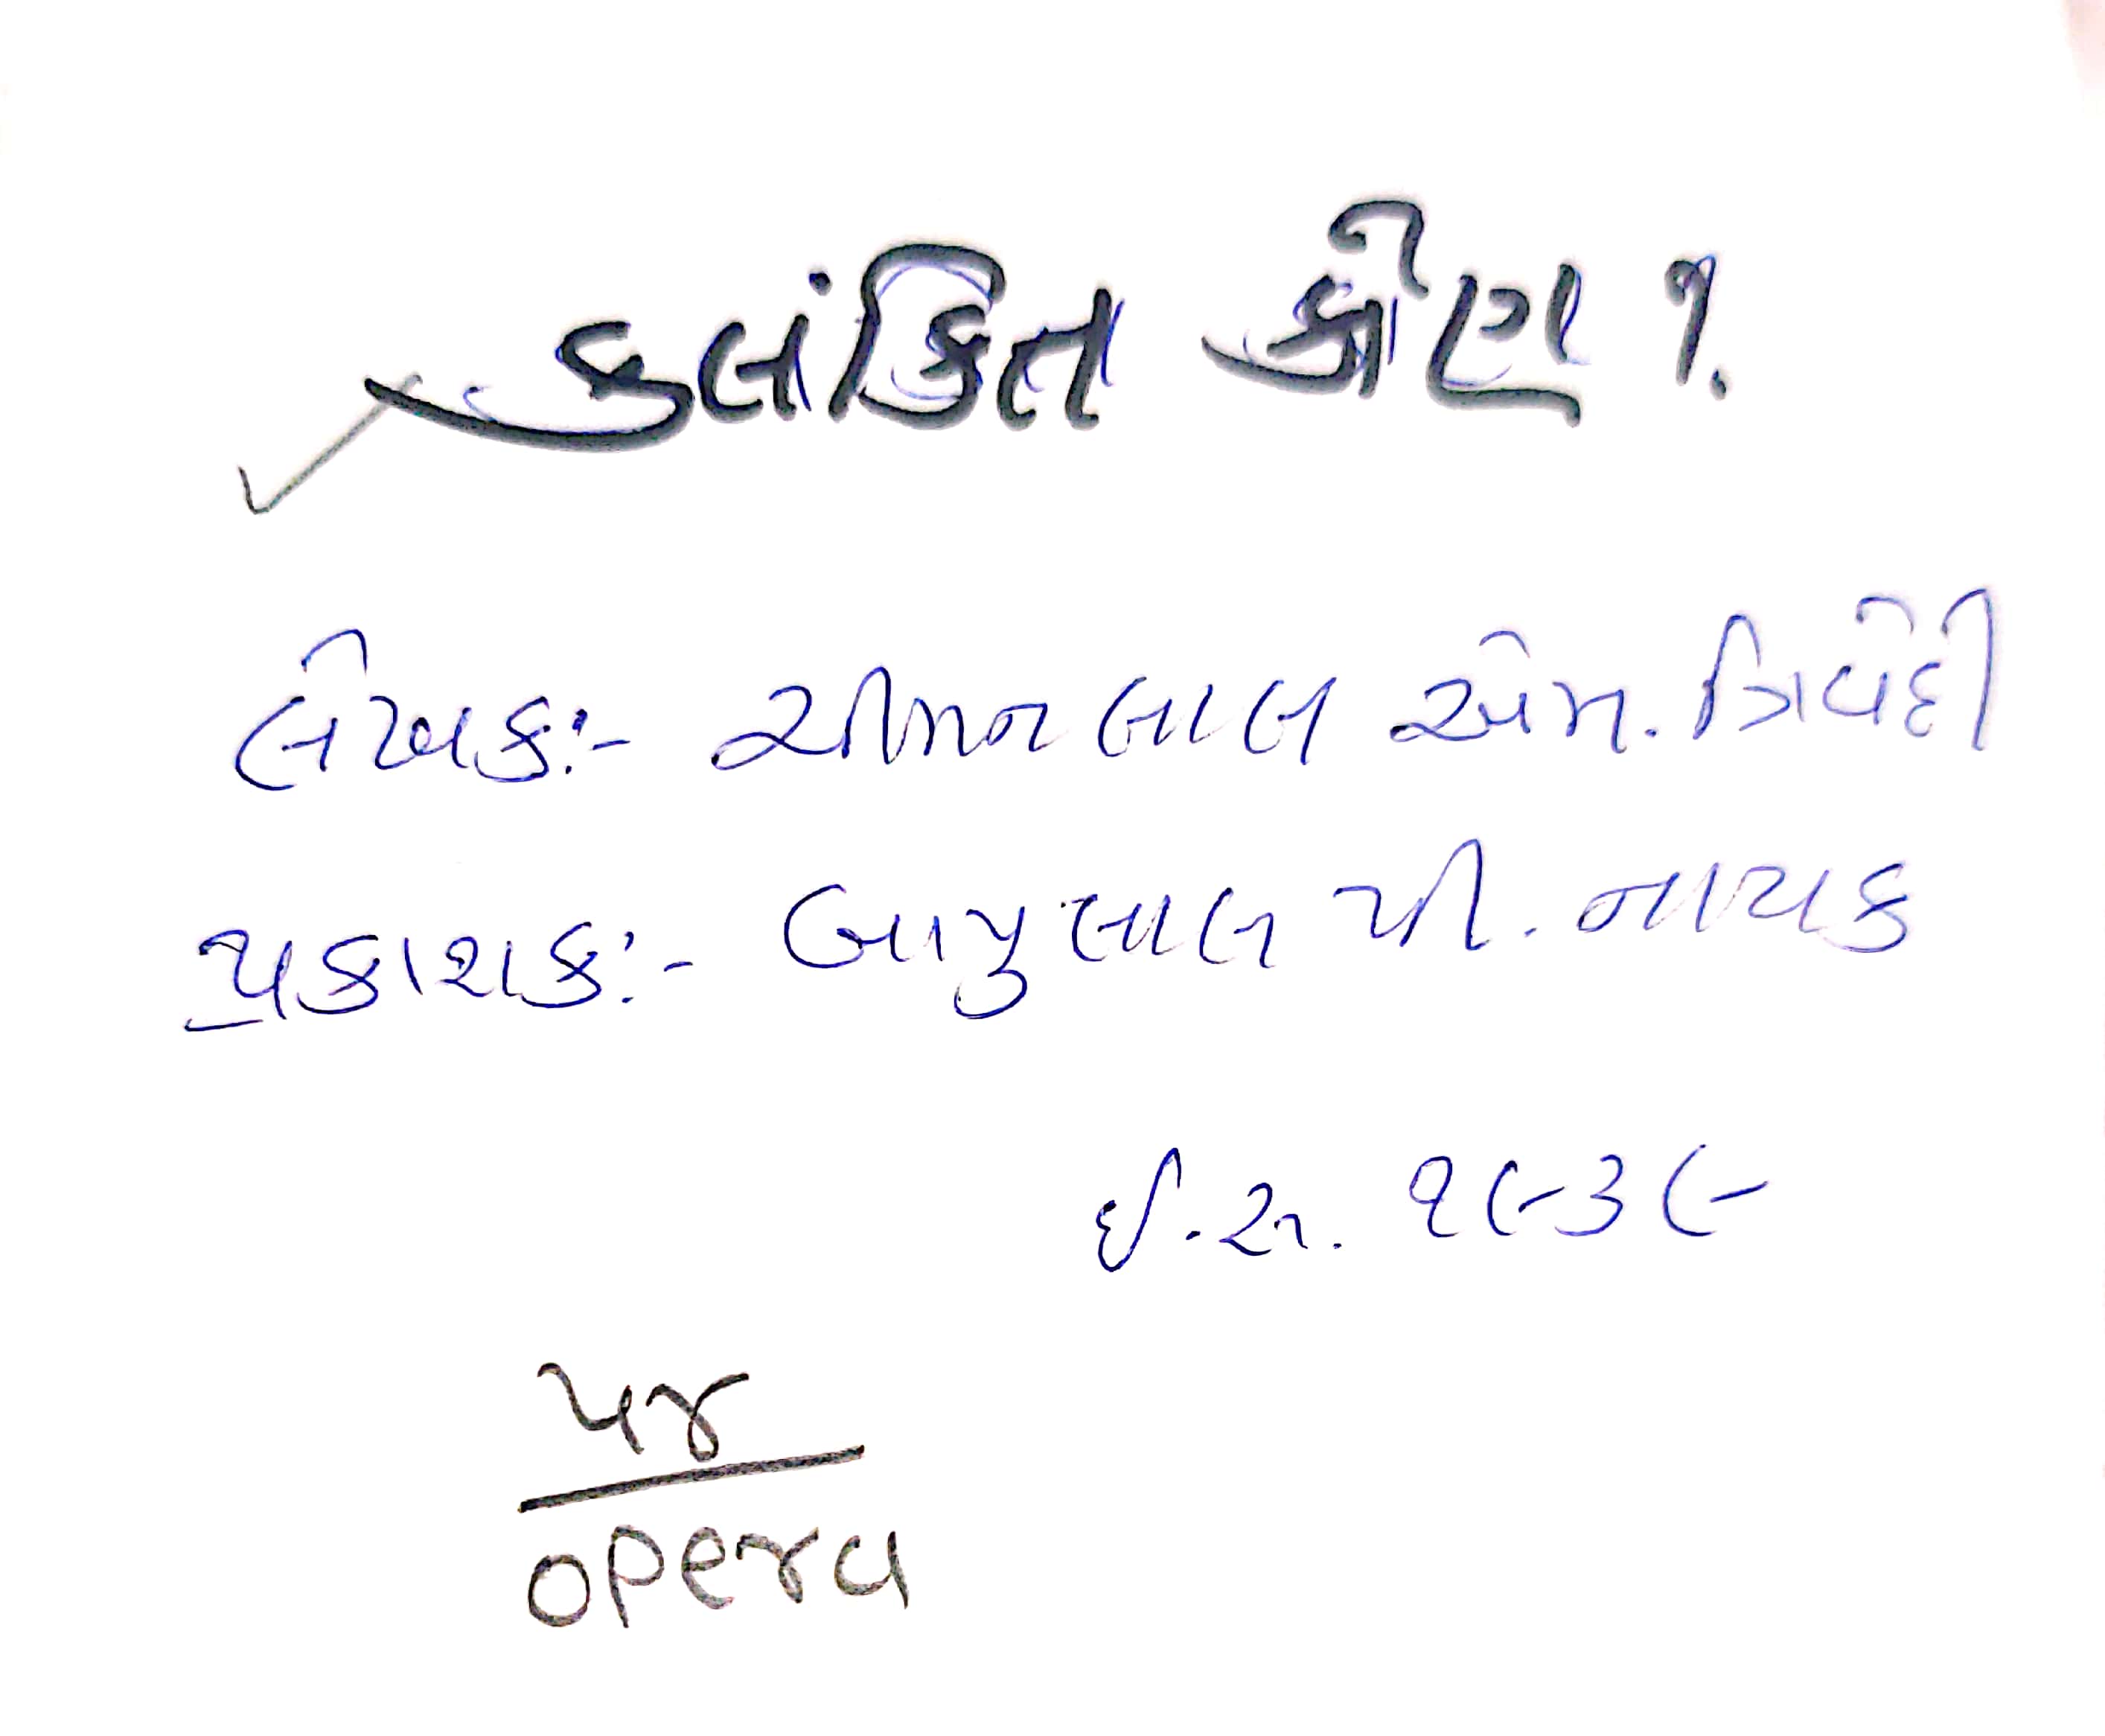 કલંકિત કોણ ?
લેખક:- ચીમનલાલ એમ. ત્રિવેદી
પ્રકાશક:- બાપુલાલ પી. નાયક
ઈ.સ. ૧૯૩૯
૫૪
opera